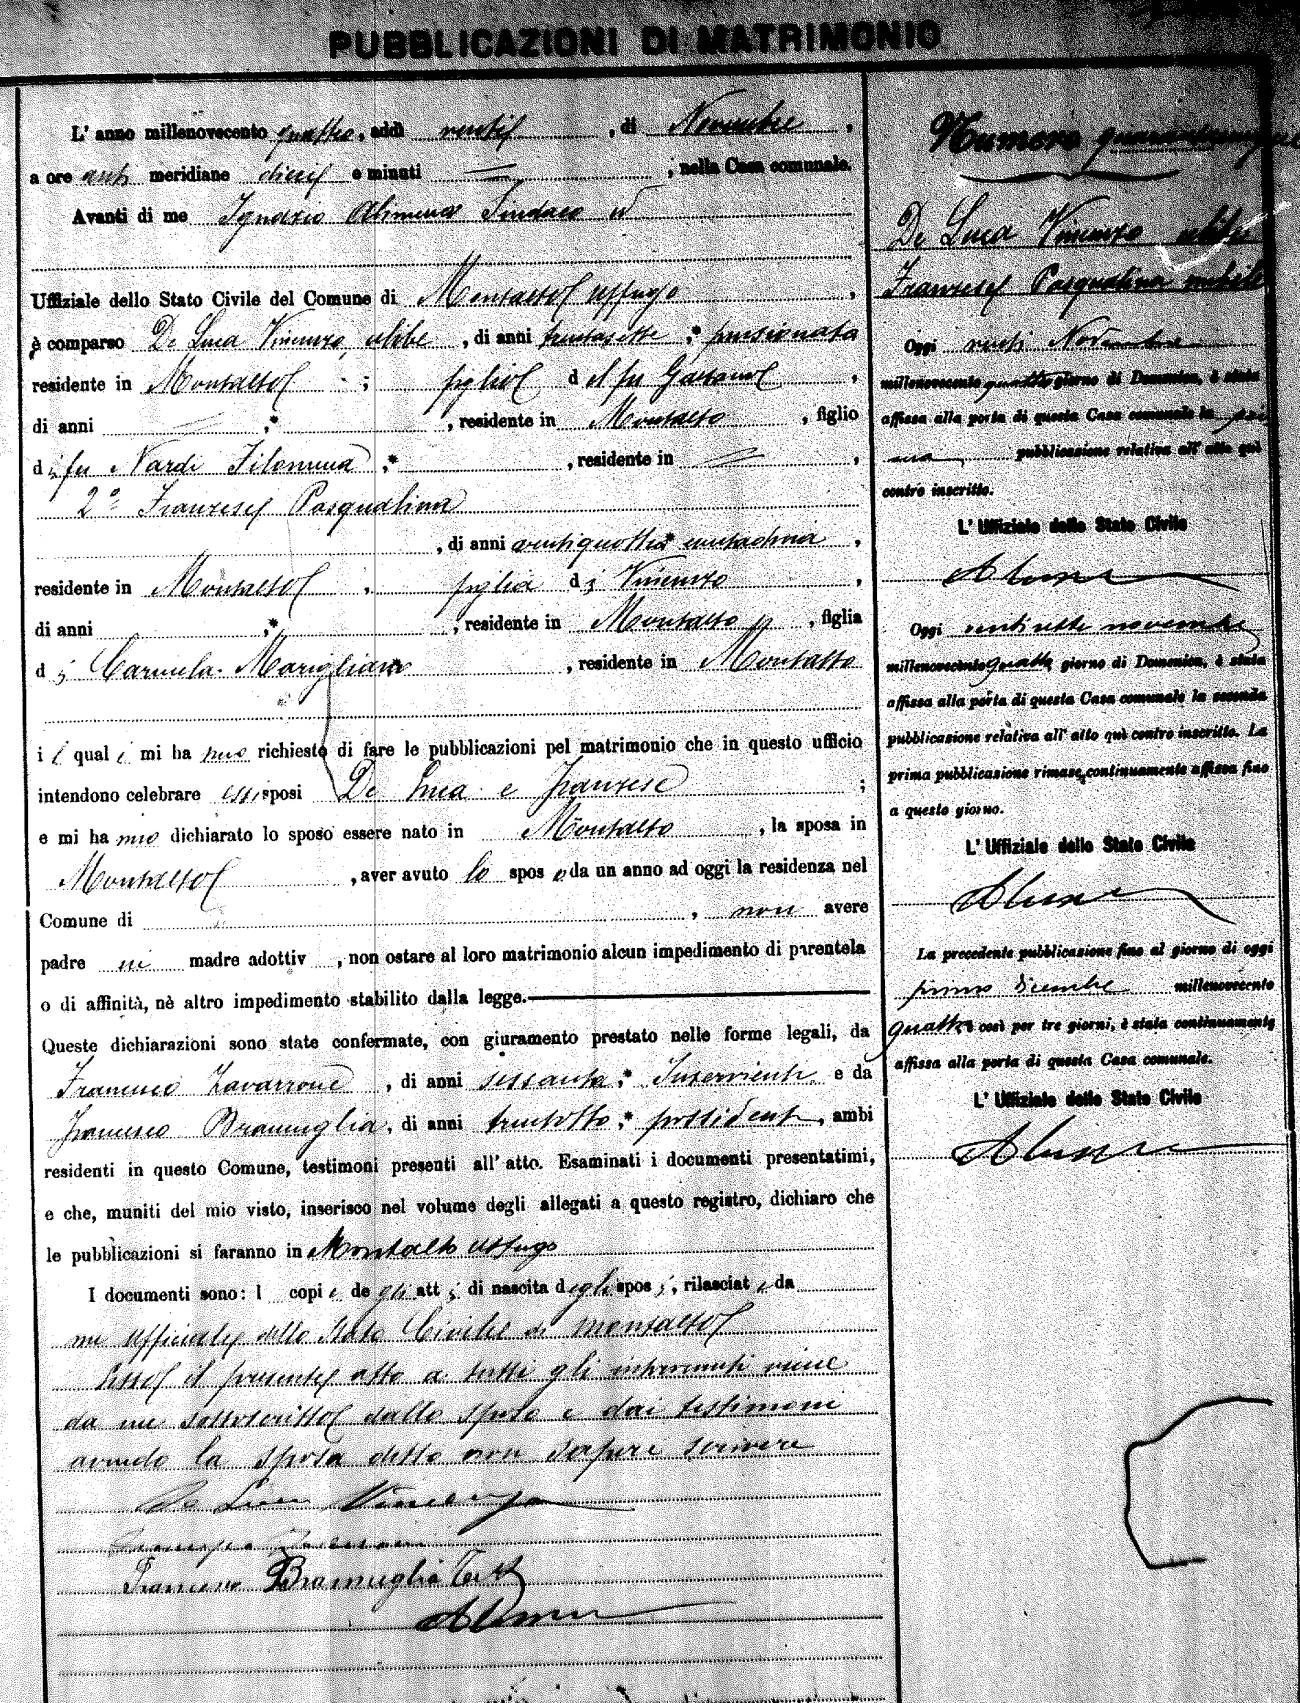 PUBBLICAZIONI DI MATRIMONIO
L' anno millenovecento quattro, addì venti, di Novembre,
a ore anti meridiane dieci e minuti =, nella Casa comunale.
Avanti di me Ignazio Alimena Sindaco
Uffiziale dello Stato Civile del Comune di Montalto Uffugo,
è comparso De Luca Vincenzo, celibe, di anni trentasette,* pensionato
residente in Montalto; figlio del fu Gaetano,
di anni =,* , residente in Montalto, figlio
di fu Nardi Filomena,* , residente in =,
2º Franzese Pasqualina
, di anni ventiquattro* contadina,
residente in Montalto, figlia di Vincenzo,
di anni ,* , residente in Montalto, figlia
di Carmela Marigliano, residente in Montalto
i quali mi ha nno richiesto di fare le pubblicazioni pel matrimonio che in questo ufficio
intendono celebrare essi sposi De Luca e Franzese;
e mi ha nno dichiarato lo sposo essere nato in Montalto, la sposa in
Montalto, aver avuto lo sposo da un anno ad oggi la residenza nel
Comune di , non avere
padre nè madre adottiv , non ostare al loro matrimonio alcun impedimento di parentela
o di affinità, nè altro impedimento stabilito dalla legge.—
Queste dichiarazioni sono state confermate, con giuramento prestato nelle forme legali, da
Francesco Zavarrone, di anni sessanta,* Inserviente e da
Francesco Bramuglia, di anni trentotto,* possidente, ambi
residenti in questo Comune, testimoni presenti all' atto. Esaminati i documenti presentatimi,
e che, muniti del mio visto, inserisco nel volume degli allegati a questo registro, dichiaro che
le pubblicazioni si faranno in Montalto Uffugo
I documenti sono: l copie de gli atti di nascita degli sposi, rilasciate da
me Ufficiale dello Stato Civile di Montalto
Letto il presente atto a tutti gli intervenuti viene
da me sottoscritto dallo sposo e dai testimoni
avendo la sposa detto non sapere scrivere
De Luca Vincenzo
Francesco Bramuglia Test
Alimena
Numero
De Luca Vincenzo celibe
Franzese Pasqualina nubile
Oggi venti Novembre
millenovecento quattro giorno di Domenica, è stata
affissa alla porta di questa Casa comunale la pri
ma pubblicazione relativa all' atto quì
contro inscritto.
L' Uffiziale dello Stato Civile
Alimena
Oggi ventisette novembre
millenovecento quattro giorno di Domenica, è stata
affissa alla porta di questa Casa comunale la seconda
pubblicazione relativa all' atto quì contro inscritto. La
prima pubblicazione rimase continuamente affissa fino
a questo giorno.
L' Uffiziale dello Stato Civile
Alimena
La precedente pubblicazione fino al giorno di oggi
primo Dicembre millenovecento
quattro e così per tre giorni, è stata continuamente
affissa alla porta di questa Casa comunale.
L' Uffiziale dello Stato Civile
Alimena